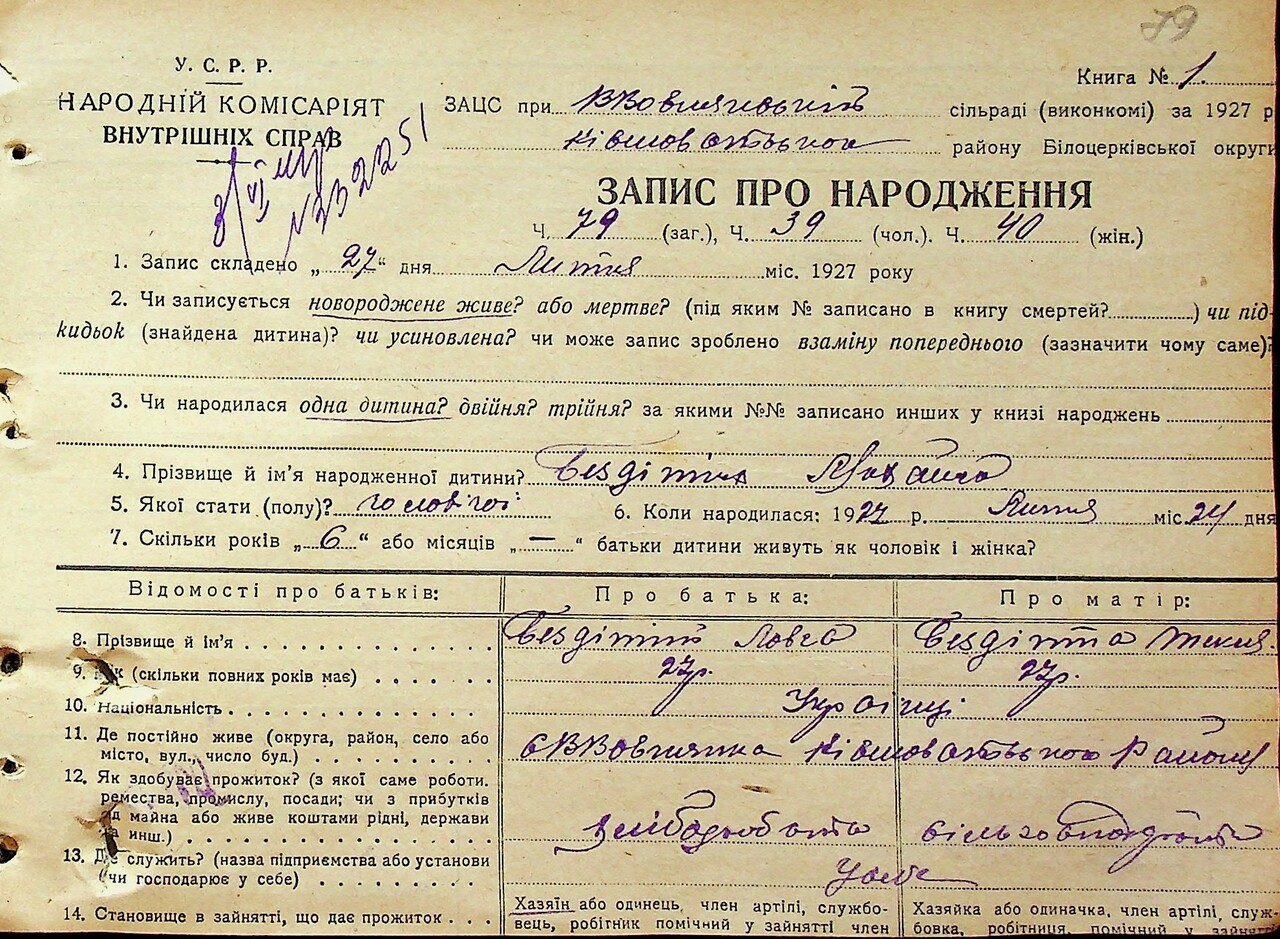 79
У. С. Р. Р.
НАРОДНІЙ КОМІСАРІЯТ
ВНУТРІШНІХ СПРАВ
Книга № 1.
ЗАЦС при сільраді (виконкомі) за 1927 р
району Білоцерківської округи
ЗАПИС ПРО НАРОДЖЕННЯ
Ч. 79 (заг.), Ч. 39 (чол.). Ч. 40 (жін.)
1. Запис складено „ 27 “ дня Липня міс. 1927 року
2. Чи записується новороджене живе? або мертве? (під яким № записано в книгу смертей? ) чи під-
кидьок (знайдена дитина)? чи усиновлена? чи може запис зроблено взаміну попереднього (зазначити чому саме)?
3. Чи народилася одна дитина? двійня? трійня? за якими №№ записано инших у книзі народжень
4. Прізвище й ім’я народженної дитини?
5. Якої стати (полу)? чоловічої 6. Коли народилася: 1927 р. Липня міс. 24 дня
7. Скільки років „ 6 “ або місяців „ — “ батьки дитини живуть як чоловік і жінка?
Відомості про батьків: Про батька: Про матір:
8. Прізвище й ім’я
9. Вік (скільки повних років має) 27р. 27р.
10. Національність Українці
11. Де постійно живе (округа, район, село або
місто, вул., число буд.) району
12. Як здобуває прожиток? (з якої саме роботи.
ремества, промислу, посади; чи з прибутків
від майна або живе коштами рідні, держави
та инш.)
13. Де служить? (назва підприємства або установи
чи господарює у себе)
14. Становище в зайнятті, що дає прожиток
Хазяїн або одинець, член артілі, службо-
вець, робітник помічний у зайнятті член
Хазяйка або одиначка, член артілі, служ-
бовка, робітниця, помічний у зайнятті